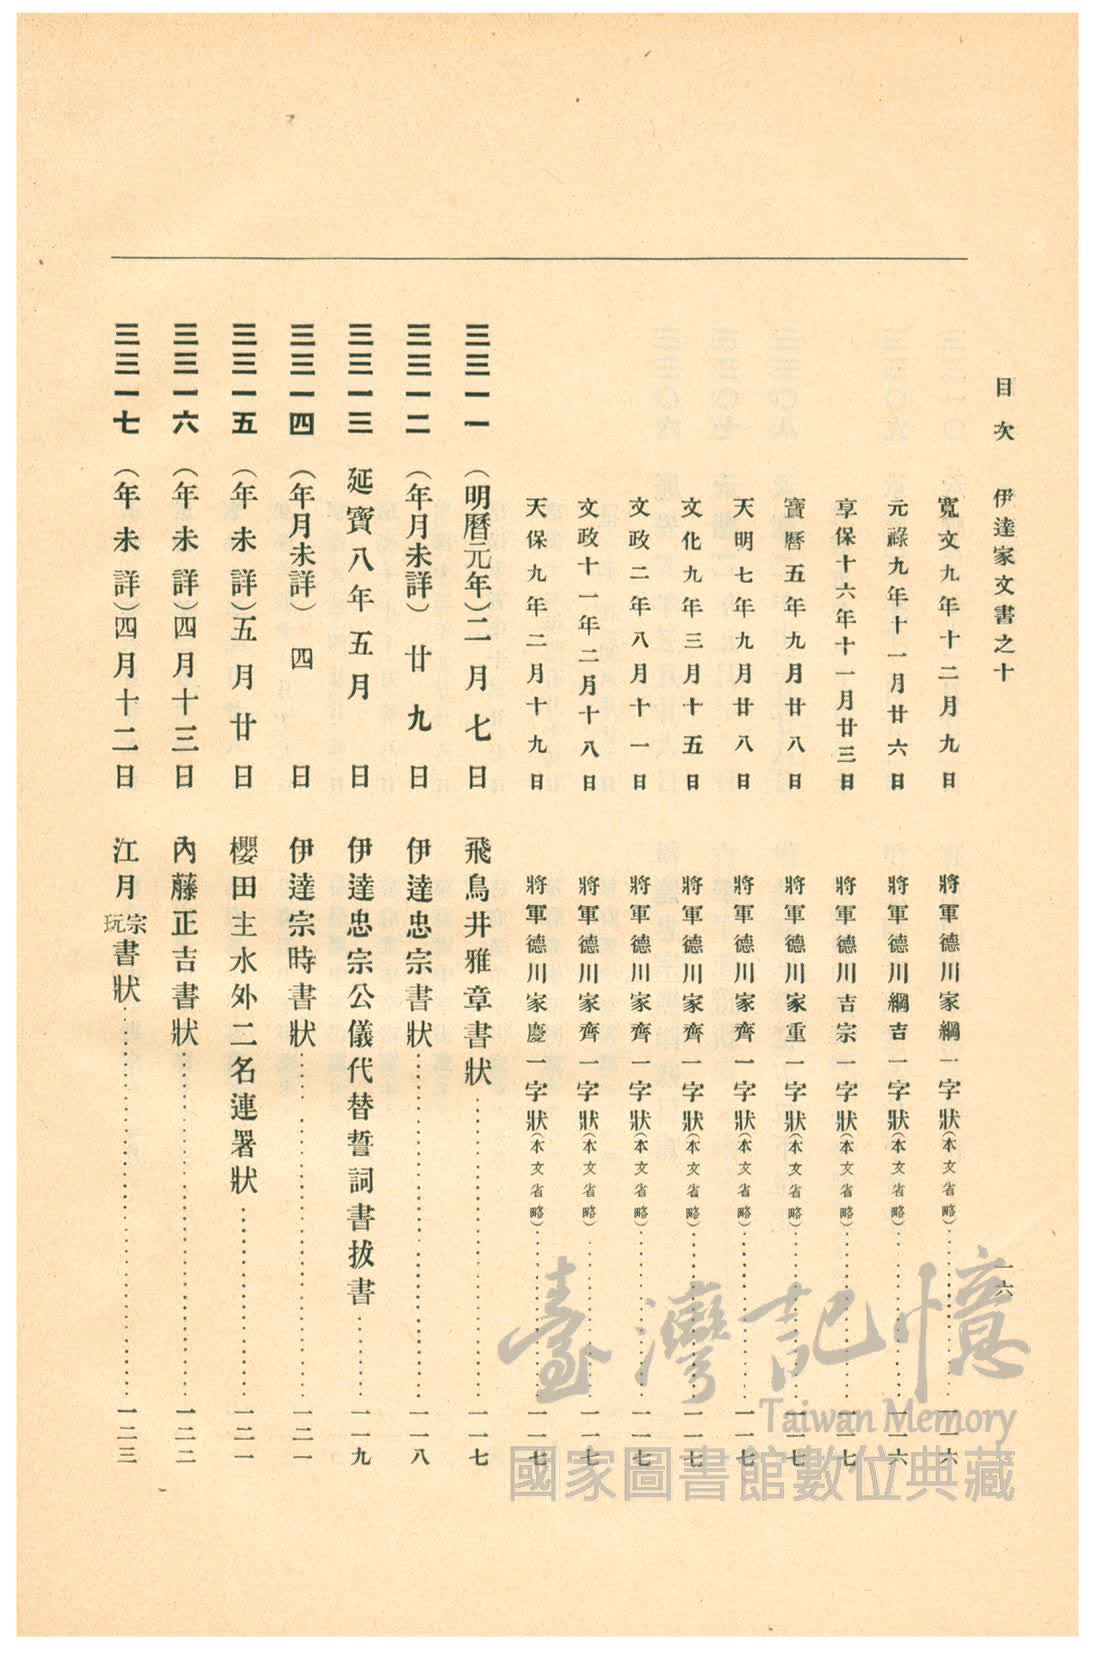 目次　伊達家文書之十　一六
寬文九年十二月九日　將軍德川家綱一字狀（本文省略）……一一六
元祿九年十一月廿六日　將軍德川綱吉一字狀（本文省略）……一一六
享保十六年十一月廿三日　將軍德川吉宗一字狀（本文省略）……一一七
寶曆五年九月廿八日　將軍德川家重一字狀（本文省略）……一一七
天明七年九月廿八日　將軍德川家齊一字狀（本文省略）……一一七
文化九年三月十五日　將軍德川家齊一字狀（本文省略）……一一七
文政二年八月十一日　將軍德川家齊一字狀（本文省略）……一一七
文政十一年二月十八日　將軍德川家齊一字狀（本文省略）……一一七
天保九年二月十九日　將軍德川家慶一字狀（本文省略）……一一七
三三一一　（明曆元年）二月七日　飛鳥井雅章書狀……一一七
三三一二　（年月未詳）廿九日　伊達忠宗書狀……一一八
三三一三　延寶八年五月　日　伊達忠宗公儀代替誓詞書拔書……一一九
三三一四　（年月未詳）四日　伊達宗時書狀……一二一
三三一五　（年未詳）五月廿日　櫻田主水外二名連署狀……一二一
三三一六　（年未詳）四月十三日　內藤正吉書狀……一二二
三三一七　（年未詳）四月十二日　江月宗玩書狀……一二三
臺灣記憶
Taiwan Memory
國家圖書館數位典藏